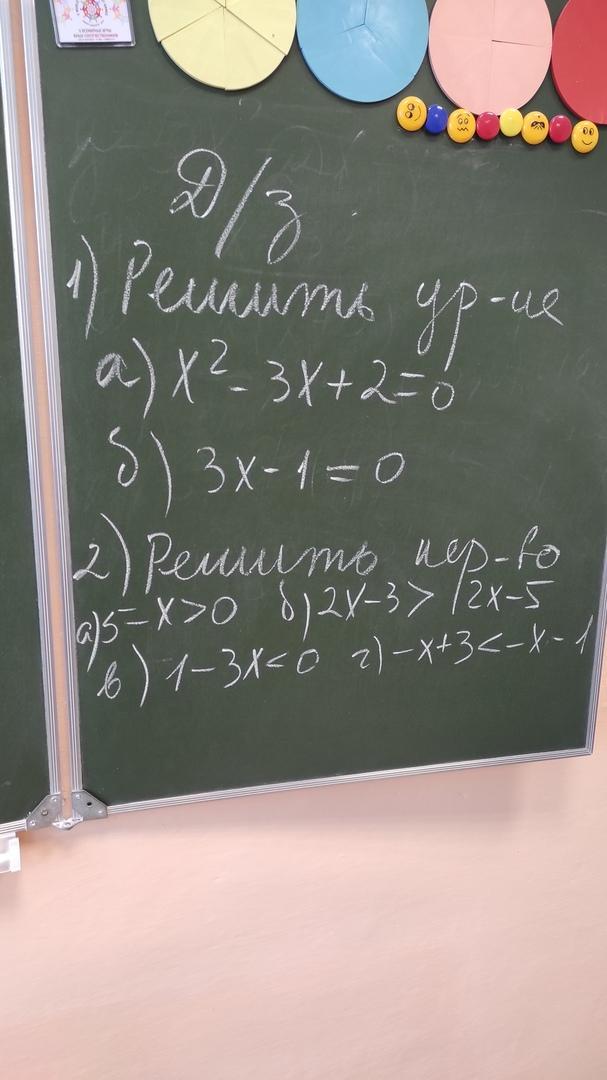 Д/з
1) Решить ур-ие
а) x² - 3x + 2 = 0
б) 3x - 1 = 0
2) Решить нер-во
а) 5 - x > 0 б) 2x - 3 > 2x - 5
в) 1 - 3x < 0 г) -x + 3 < -x - 1